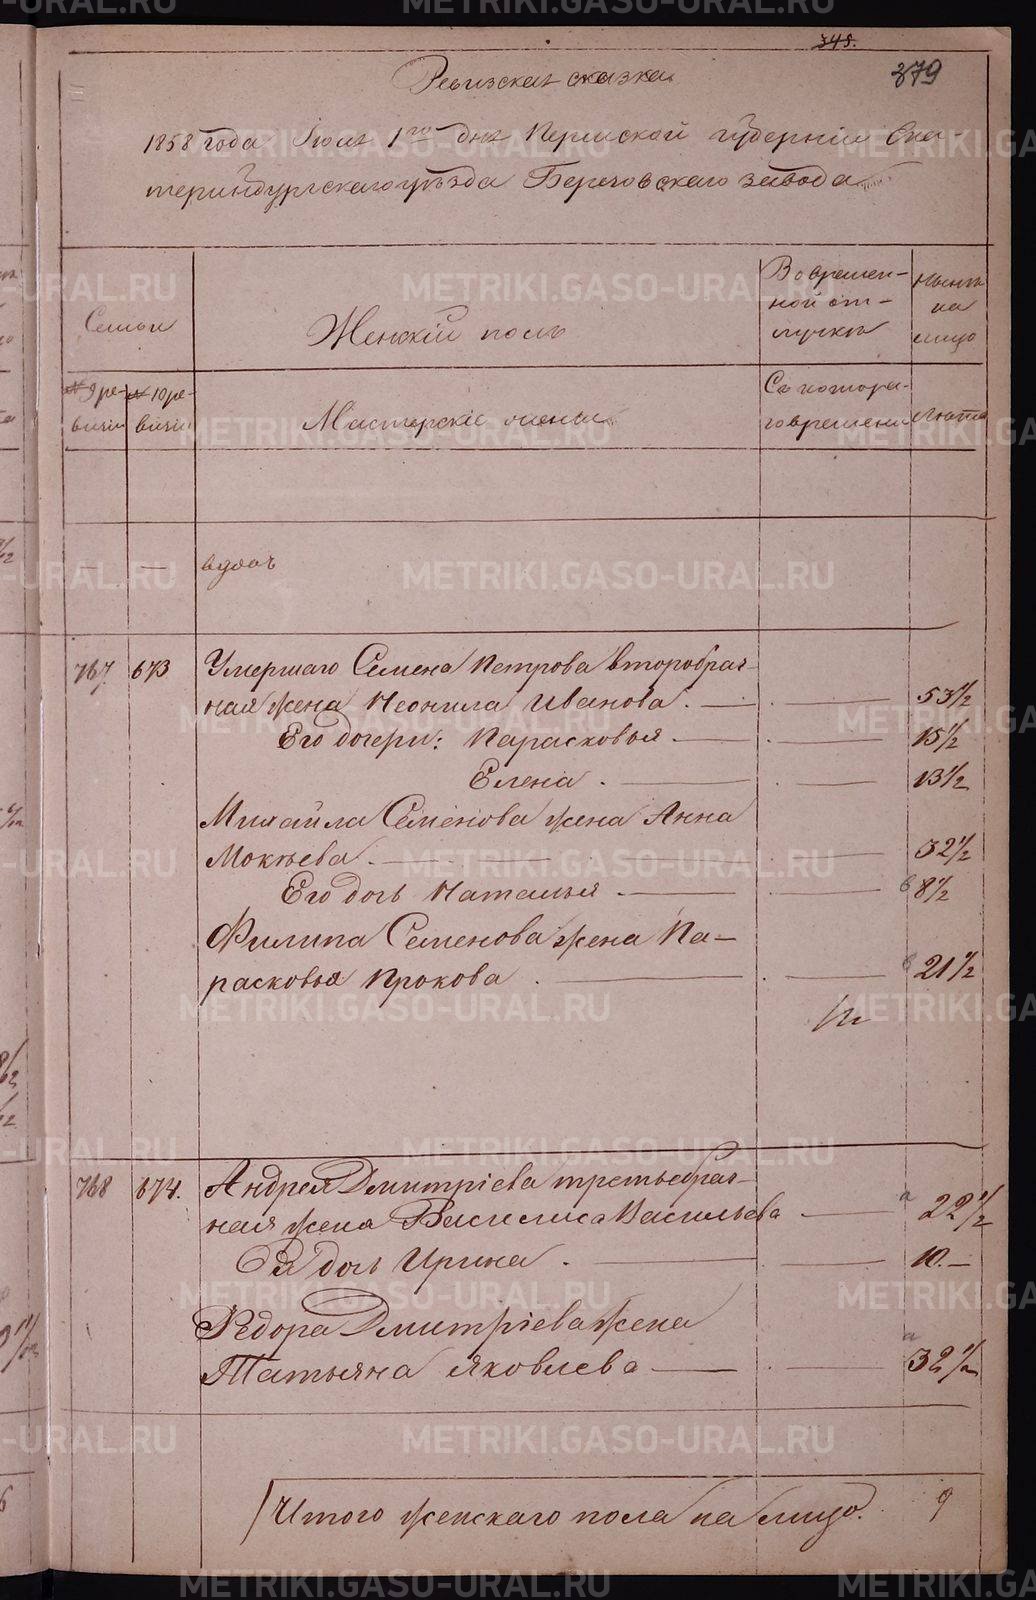 345.
379
Ревизская сказка
1858 года Июля 1го дня Пермской губернии Ека-
теринбургского уезда Березовского завода
Семьи
Женскій полъ
Во времен-
ной от-
лучке
Ныне
на
лицо
№ 9 ре-
визіи
№ 10 ре-
визіи
Мастерскіе
Съ котора-
го времени
Лета
— —
767 673 Умершаго Семена Петрова второбрач-
ная жена Неонила Иванова. — — 53 1/2
Его дочери: Парасковья — — 15 1/2
Елена — — 13 1/2
Михайла Семенова жена Анна
Мокеева — — 32 1/2
Его дочь Наталья — — в 8 1/2
Филипа Семенова жена Па-
расковья Прокова — — 21 1/2
768 674. Андрея Дмитріева третьебрач-
ная жена Василиса Васильева — а 22 1/2
Ея дочь Ирина — — 10. —
Федора Дмитріева жена
Татьяна Яковлева — — а 32 1/2
Итого женскаго пола на лицо. 9
METRIKI.GASO-URAL.RU